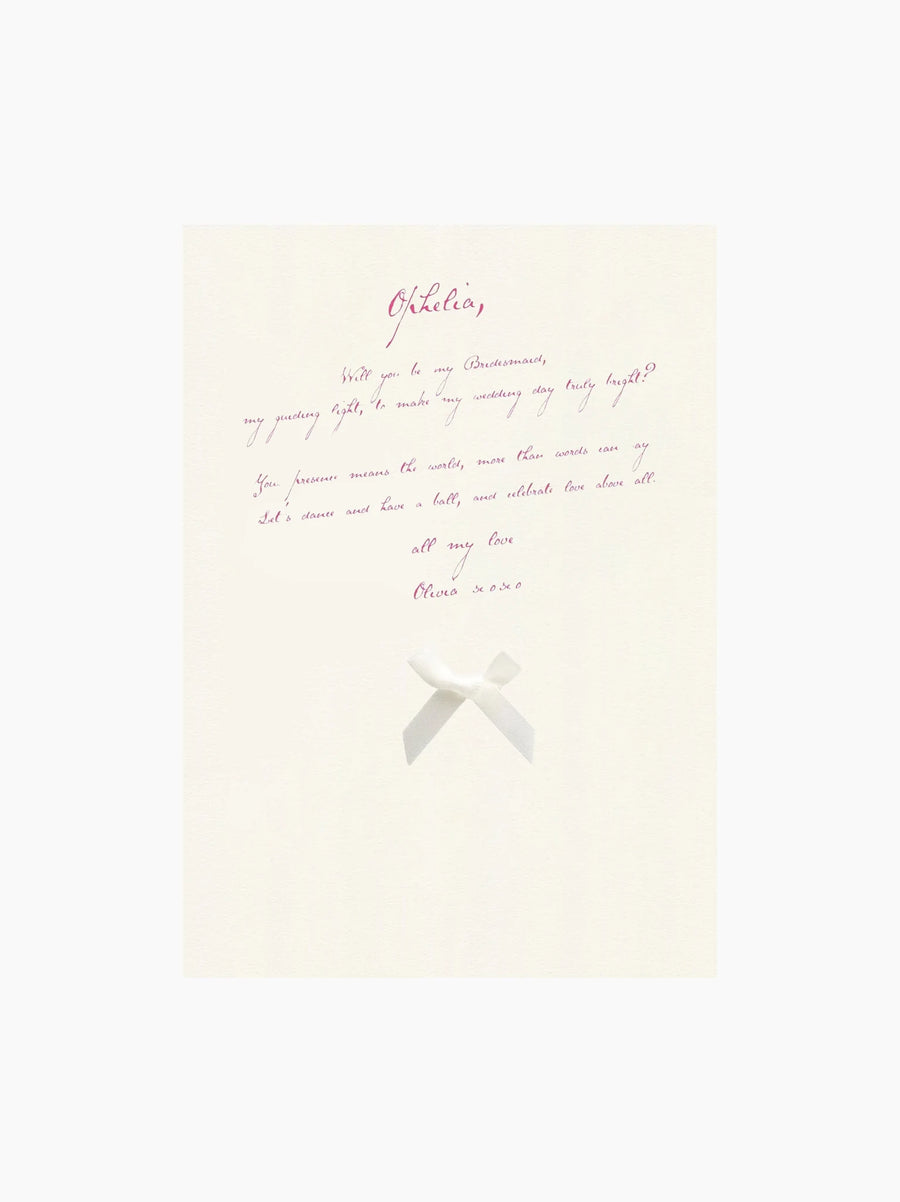 Ophelia,
Will you be my Bridesmaid,
my guiding light, to make my wedding day truly bright?
You presence means the world, more than words can ay
Let's dance and have a ball, and celebrate love above all.
all my love
Olivia xoxo